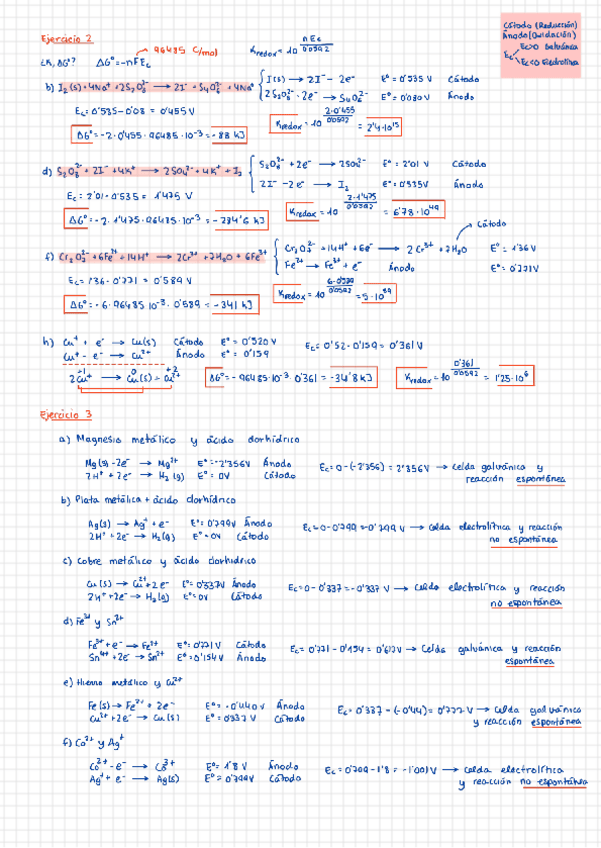 Cátodo (Reducción)
Ánodo (Oxidación)
Ec
Ec>0 Galvánica
Ec<0 Electrolítica
Ejercicio 2
96485 C/mol
¿K, ΔG°? ΔG° = -nFEc
Kredox = 10^(n Ec/0'0592)
b) I2(s) + 4Na+ + 2S2O3^2- → 2I- + S4O6^2- + 4Na+
I(s) → 2I- - 2e- E° = 0'535 V Cátodo
→ S4O6^2- E° = 0'080 V Ánodo
Ec = 0'535 - 0'08 = 0'455 V
ΔG° = -2·0'455·96485·10^-3 = -88 kJ
Kredox = 10^(2·0'455/0'0592) = 2'4·10^15
d) S2O8^2- + 2I- + 4K+ → 2SO4^2- + 4K+ + I2
S2O8^2- + 2e- → 2SO4^2- E° = 2'01 V Cátodo
2I- - 2e- → I2 E° = 0'535V Ánodo
Ec = 2'01 - 0'535 = 1'475 V
ΔG° = -2·1'475·96485·10^-3 = -284'6 kJ
Kredox = 10^(2·1'475/0'0592) = 6'78·10^49
Cátodo
f) Cr2O7^2- + 6Fe^2+ + 14H+ → 2Cr^3+ + 7H2O + 6Fe^3+
Cr2O7^2- + 14H+ + 6e- → 2Cr^3+ + 7H2O E° = 1'36 V
Fe^2+ → Fe^3+ + e- Ánodo E° = 0'771V
Ec = 1'36 - 0'771 = 0'589 V
ΔG° = -6·96485·10^-3·0'589 = -341 kJ
Kredox = 10^(6·0'589/0'0592) = 5·10^59
h) Cu+ + e- → Cu(s) Cátodo E° = 0'520 V
Cu+ - e- → Cu^2+ Ánodo E° = 0'159
Ec = 0'52 - 0'159 = 0'361 V
+1 0 +2
2Cu+ → Cu(s) + Cu^2+
ΔG° = -96485·10^-3·0'361 = -34'8 kJ
Kredox = 10^(0'361/0'0592) = 1'25·10^6
Ejercicio 3
a) Magnesio metálico y ácido clorhídrico
Mg(s) - 2e- → Mg^2+ E° = -2'356V Ánodo
2H+ + 2e- → H2(g) E° = 0V Cátodo
Ec = 0 - (-2'356) = 2'356V → Celda galvánica y
reacción espontánea
b) Plata metálica + ácido clorhídrico
Ag(s) → Ag+ + e- E° = 0'799V Ánodo
2H+ + 2e- → H2(g) E° = 0V Cátodo
Ec = 0 - 0'799 = -0'799 V → Celda electrolítica y reacción
no espontánea
c) Cobre metálico y ácido clorhídrico
Cu(s) → Cu^2+ + 2e- E° = 0'337V Ánodo
2H+ + 2e- → H2(g) E° = 0V Cátodo
Ec = 0 - 0'337 = -0'337 V → Celda electrolítica y reacción
no espontánea
d) Fe^3+ y Sn^2+
Fe^3+ + e- → Fe^2+ E° = 0'771 V Cátodo
Sn^4+ + 2e- → Sn^2+ E° = 0'154V Ánodo
Ec = 0'771 - 0'154 = 0'617V → Celda galvánica y reacción
espontánea
e) Hierro metálico y Cu^2+
Fe(s) → Fe^2+ + 2e- E° = -0'440 V Ánodo
Cu^2+ + 2e- → Cu(s) E° = 0'337 V Cátodo
Ec = 0'337 - (-0'44) = 0'777 V → Celda galvánica
y reacción espontánea
f) Co^2+ y Ag+
Co^2+ - e- → Co^3+ E° = 1'8 V Ánodo
Ag+ + e- → Ag(s) E° = 0'799V Cátodo
Ec = 0'799 - 1'8 = -1'001 V → Celda electrolítica
y reacción no espontánea